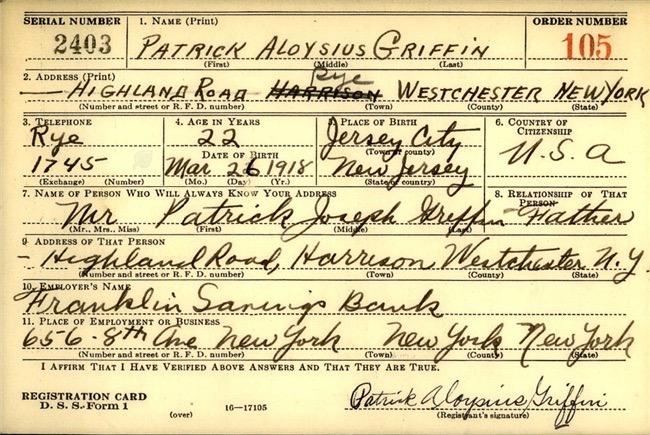 SERIAL NUMBER 1. NAME (Print) ORDER NUMBER
2403 PATRICK ALOYSIUS GRIFFIN 105
(First) (Middle) (Last)
2. ADDRESS (Print) Rye
— HIGHLAND ROAD HARRISON WESTCHESTER NEW YORK
(Number and street or R. F. D. number) (Town) (County) (State)
3. TELEPHONE 4. AGE IN YEARS 5. PLACE OF BIRTH 6. COUNTRY OF
Rye 22 Jersey City CITIZENSHIP
DATE OF BIRTH (Town or county) U.S.A
1745 Mar 26 1918 New Jersey
(Exchange) (Number) (Mo.) (Day) (Yr.) (State or country)
7. NAME OF PERSON WHO WILL ALWAYS KNOW YOUR ADDRESS 8. RELATIONSHIP OF THAT
PERSON
Mr Patrick Joseph Griffin Father
(Mr., Mrs., Miss) (First) (Middle) (Last)
9. ADDRESS OF THAT PERSON
- Highland Road, Harrison Westchester N.Y.
(Number and street or R. F. D. number) (Town) (County) (State)
10. EMPLOYER'S NAME
Franklin Savings Bank
11. PLACE OF EMPLOYMENT OR BUSINESS
656-8th Ave New York New York New York
(Number and street or R. F. D. number) (Town) (County) (State)
I AFFIRM THAT I HAVE VERIFIED ABOVE ANSWERS AND THAT THEY ARE TRUE.
REGISTRATION CARD Patrick Aloysius Griffin
D. S. S. Form 1 (over) 16—17105 (Registrant's signature)